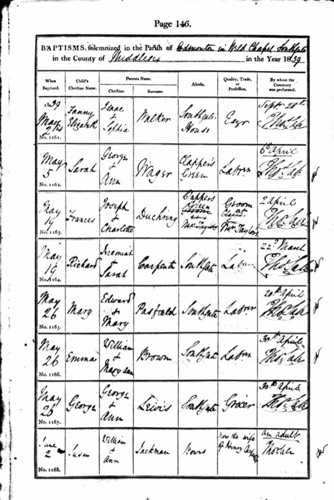 Page 146.
BAPTISMS solemnized in the Parish of Edmonton in Weld Chapel Southgate
in the County of Middlesex in the Year 1839
When Baptized. Child's Christian Name. Parents Name. Christian. Surname. Abode. Quality, Trade, or Profession. By whom the Ceremony was performed.
1839
May
No. 1161.
Fanny Elizabeth
Isaac + Sophia
Walker
Southgate House
Esqr
May 5
No. 1162.
Sarah
George + Ann
Wager
Clappers Green
Labour
May 19
No. 1163.
Frances
Joseph + Charlotte
Clappers Green
Groom
2 April
May 19
No. 1164.
Richard
Jeremiah + Sarah
Carpenter
Southgate
Labour
22d March
May 26
No. 1165.
Mary
Edward + Mary
Pasfield
Southgate
Labour
20th April
May 26
No. 1166.
Emma
William + Mary Ann
Brown
Southgate
Labour
30th April
May 26
No. 1167.
George
George + Ann
Lewis
Southgate
Grocer
30th April
June 2
No. 1168.
Susan
William + Ann
Jackman
Bowes
now the wife of Henry
an adult